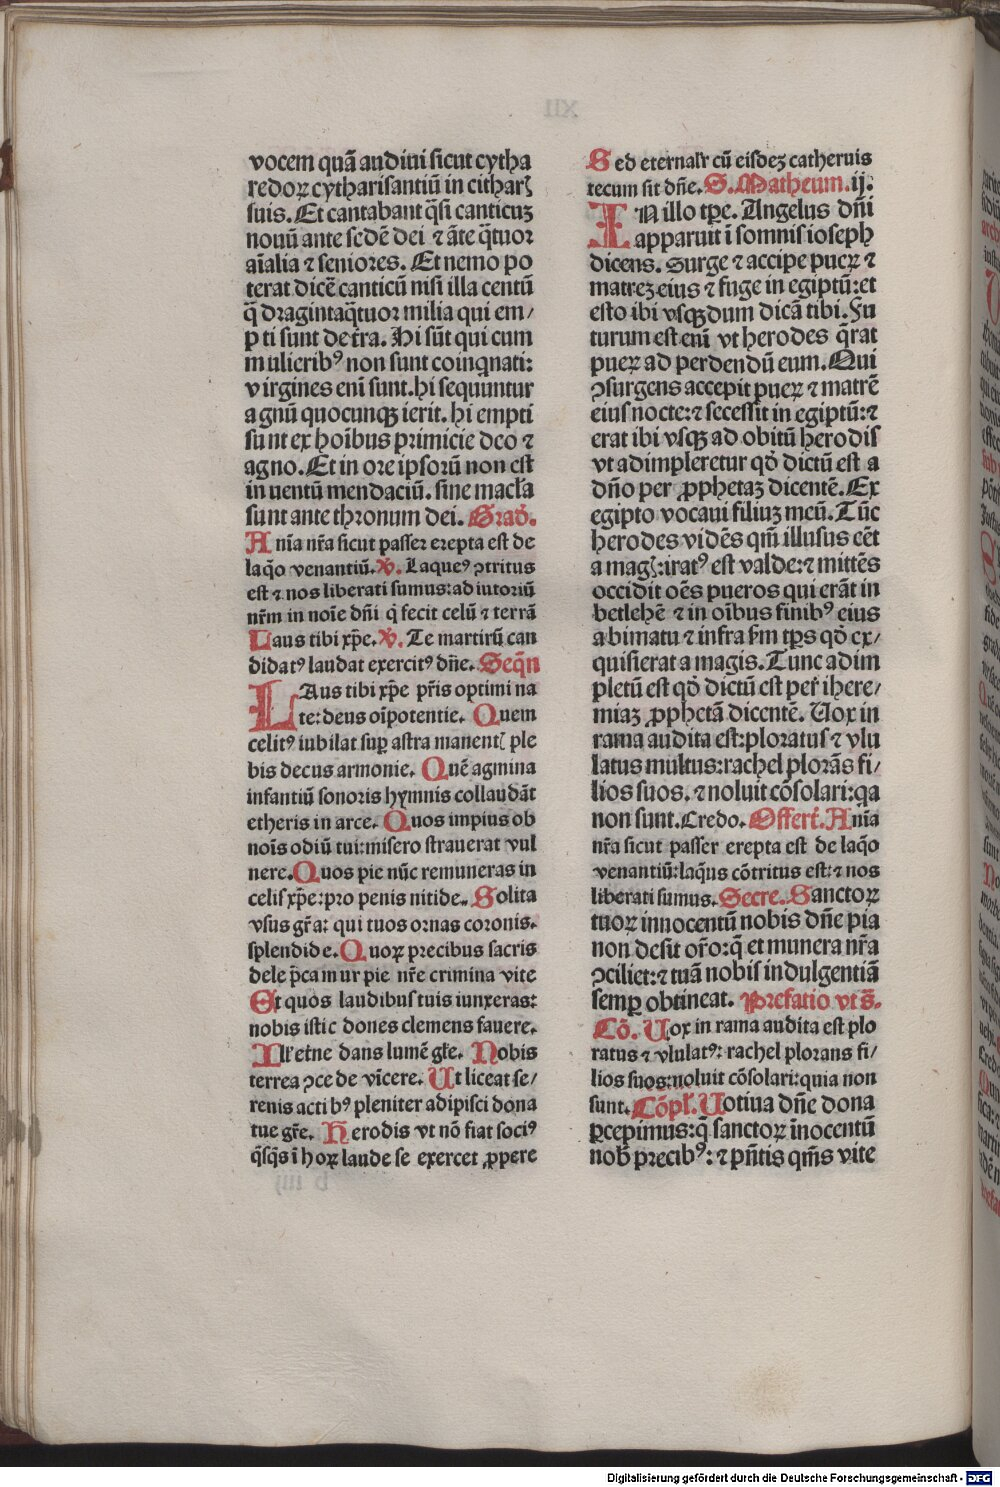 vocem quā audiui sicut cytha
redoꝝ cytharisantiū in citharꝭ
suis. Et cantabant q̄si canticuꝫ
nouū ante sedē dei ⁊ āte q̄tuor
aīalia ⁊ seniores. Et nemo po
terat dicē canticū nisi illa centū
q̄dragintaq̄tuor milia qui em/
pti sunt de t̄ra. Hi sūt qui cum
mulieribꝰ non sunt coinqnati:
virgines enī sunt. hi sequuntur
agnū quocunqꝫ ierit. hi empti
sunt ex hoībus primicie deo ⁊
agno. Et in ore ipsorū non est
inuentū mendaciū. sine macl̄a
sunt ante thronum dei. Grad̓.
Anīa nr̄a sicut passer erepta est de
laq̓o venantiū. V̓. Laqueꝰ ꝯtritus
est ⁊ nos liberati sumus: adiutoriū
nr̄m in noīe dn̄i q̓ fecit celū ⁊ terrā
Laus tibi xp̄e. V̓. Te martirū can
didatꝰ laudat exercitꝰ dn̄e. Seqn̄
LAus tibi xp̄e pr̄is optimi na
te: deus oīpotentie. Quem
celitꝰ iubilat suꝑ astra manentꝭ ple
bis decus armonie. Quē agmina
infantiū sonoris hymnis collaudāt
etheris in arce. Quos impius ob
noīs odiū tui: misero strauerat vul
nere. Quos pie nūc remuneras in
celis xp̄e: pro penis nitide. Solita
vsus gr̄a: qui tuos ornas coronis.
splendide. Quoꝝ precibus sacris
dele p̄camur pie nr̄e crimina vite
Et quos laudibus tuis iunxeras:
nobis istic dones clemens fauere.
Ill̓ et̄ne dans lumē gl̄e. Nobis
terrea ꝯcede vīcere. Ut liceat se/
renis actibꝰ pleniter adipisci dona
tue gr̄e. Herodis vt nō fiat sociꝰ
q̄sq̄s ī hoꝝ laude se exercet ꝓpere
Sed eternal̓r cū eisdeꝫ cateruis
tecum sit dn̄e. S. Matheum. ij.
IN illo tp̄e. Angelus dn̄i
apparuit ī somnis ioseph
dicens. Surge ⁊ accipe pueꝝ ⁊
matreꝫ eius ⁊ fuge in egiptū: et
esto ibi vsqꝫ dum dicā tibi. Fu
turum est enī vt herodes q̄rat
pueꝝ ad perdendū eum. Qui
ꝯsurgens accepit pueꝝ ⁊ matrē
eius nocte: ⁊ secessit in egiptū: ⁊
erat ibi vsqꝫ ad obitū herodis
vt adimpleretur qd̓ dictū est a
dn̄o per ꝓphetaꝫ dicentē. Ex
egipto vocaui filiuꝫ meū. Tūc
herodes vidēs qm̄ illusus eēt
a magꝭ: iratꝰ est valde: ⁊ mittēs
occidit oēs pueros qui erāt in
betlehē ⁊ in oībus finibꝰ eius
a bimatu ⁊ infra s̄m tp̄s qd̓ ex/
quisierat a magis. Tunc adim
pletū est qd̓ dictū est per̓ ihere/
miaꝫ ꝓphetā dicentē. Uox in
rama audita est: ploratus ⁊ vlu
latus multus: rachel plorās fi/
lios suos. ⁊ noluit cōsolari: qa
non sunt. Credo. Offert̓. Anīa
nr̄a sicut passer erepta est de laq̓o
venantiū: laq̄us cōtritus est: ⁊ nos
liberati sumus. Secre. Sanctoꝝ
tuoꝝ innocentū nobis dn̄e pia
non desit or̄o: q̄ et munera nr̄a
ꝯciliet: ⁊ tuā nobis indulgentiā
semꝑ obtineat. Prefatio vt s̄.
Cō. Uox in rama audita est plo
ratus ⁊ vlulatꝰ: rachel plorans fi/
lios suos: noluit cōsolari: quia non
sunt. Cōpl̓. Uotiua dn̄e dona
ꝑcepimus: q̄ sanctoꝝ īnocentū
nob̓ precibꝰ: ⁊ pn̄tis qm̄s vite
Digitalisierung gefördert durch die Deutsche Forschungsgemeinschaft - DFG